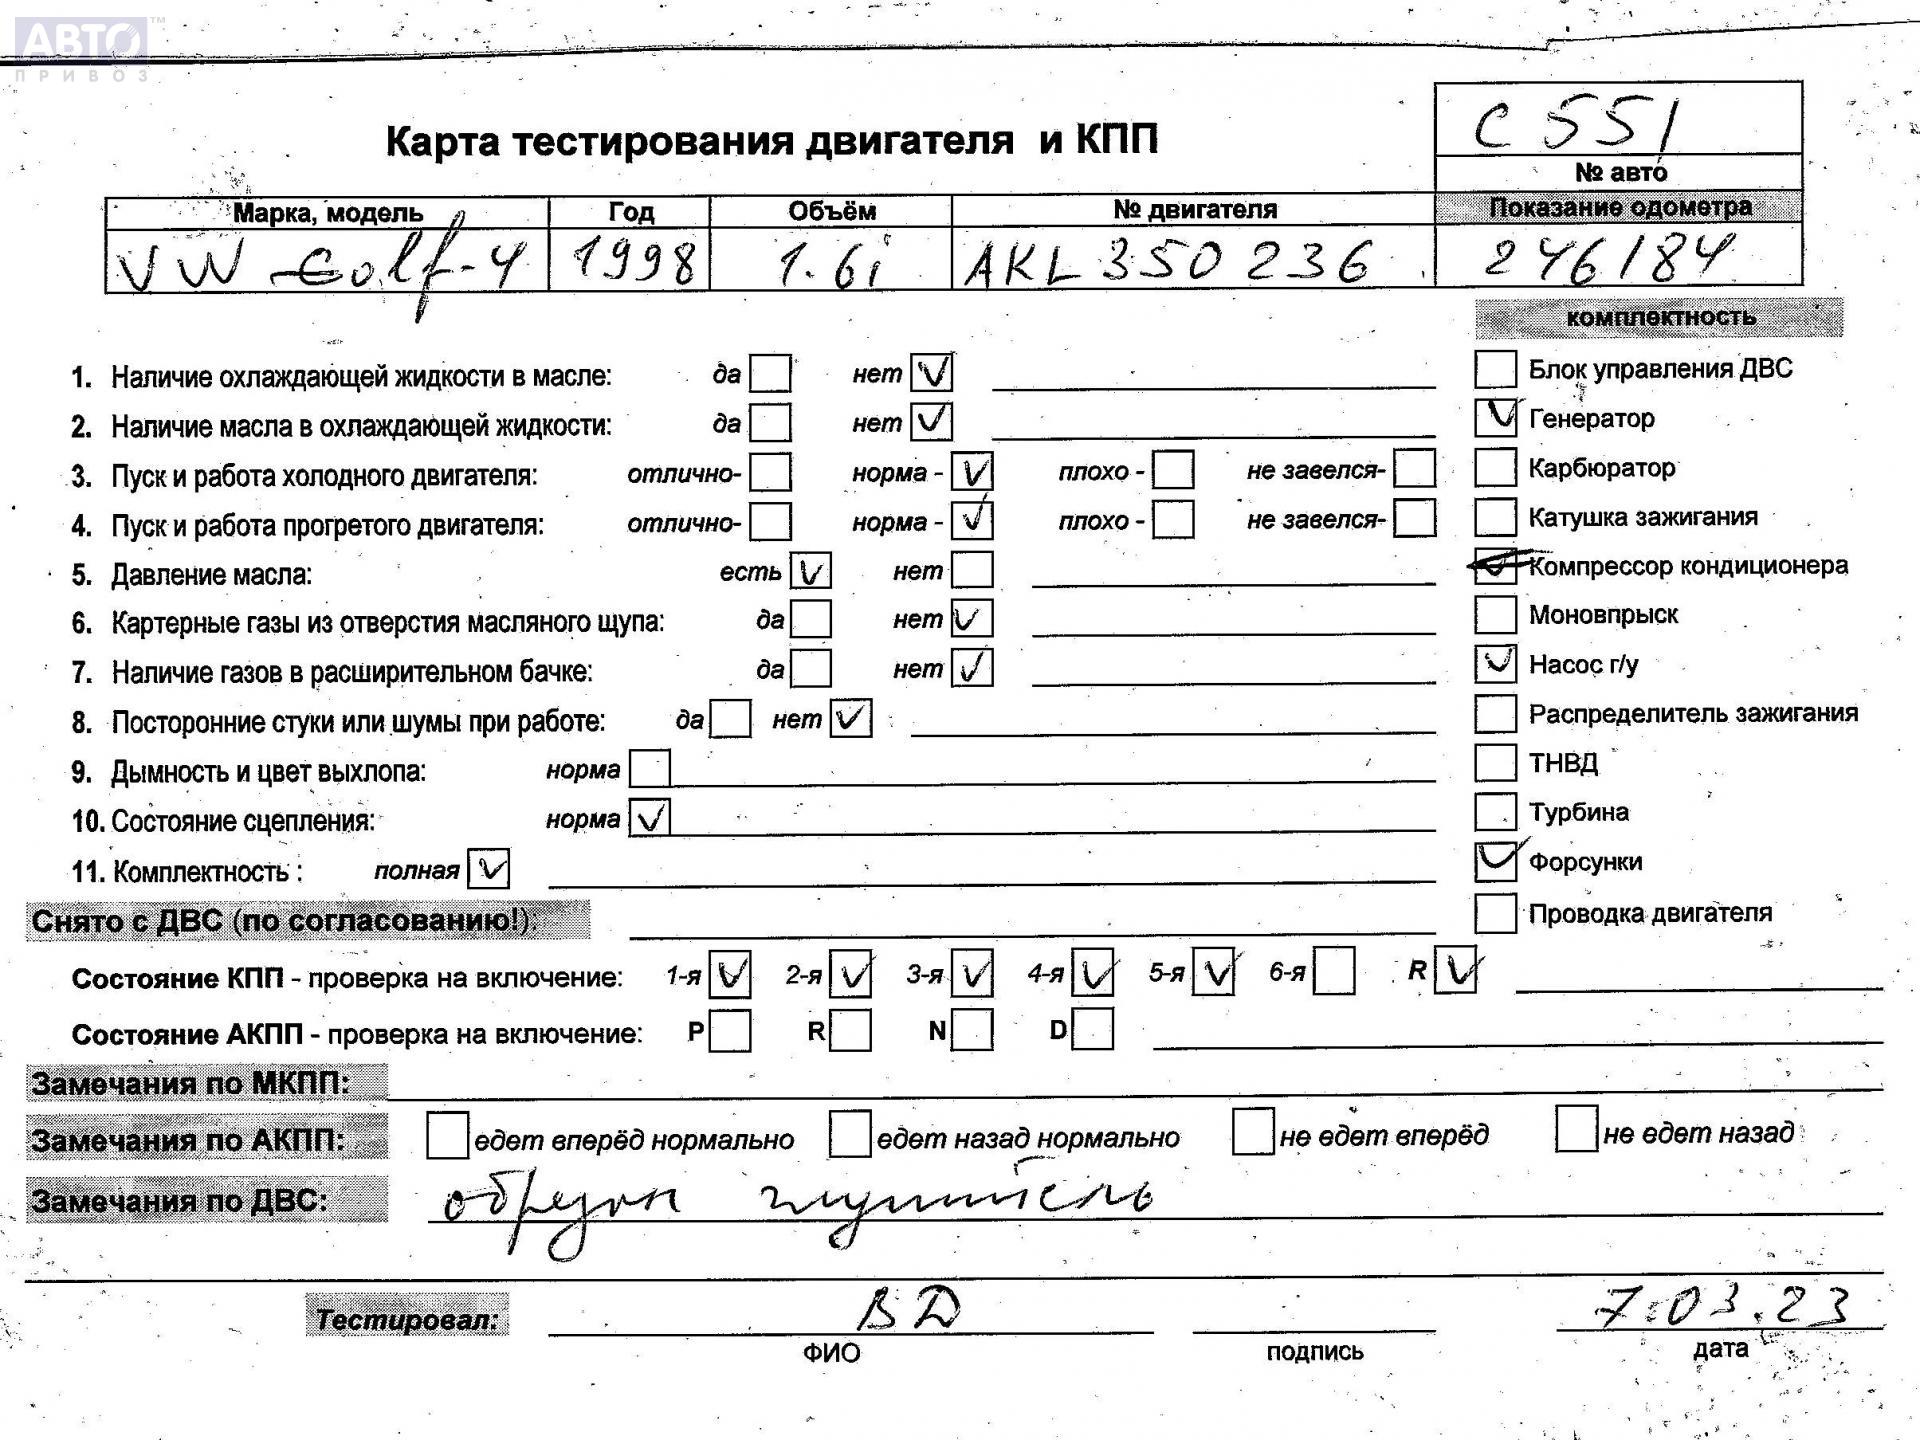 АВТО™
ПРИВОЗ
C 551
Карта тестирования двигателя и КПП
№ авто
Марка, модель Год Объём № двигателя Показание одометра
VW Golf-4 1998 1.6i AKL 350 236 246184
комплектность
1. Наличие охлаждающей жидкости в масле: да нет
Блок управления ДВС
2. Наличие масла в охлаждающей жидкости: да нет
Генератор
3. Пуск и работа холодного двигателя: отлично- норма - плохо - не завелся-
Карбюратор
4. Пуск и работа прогретого двигателя: отлично- норма - плохо - не завелся-
Катушка зажигания
5. Давление масла: есть нет
Компрессор кондиционера
6. Картерные газы из отверстия масляного щупа: да нет
Моновпрыск
7. Наличие газов в расширительном бачке: да нет
Насос г/у
8. Посторонние стуки или шумы при работе: да нет
Распределитель зажигания
9. Дымность и цвет выхлопа: норма
ТНВД
10. Состояние сцепления: норма
Турбина
11. Комплектность : полная
Форсунки
Снято с ДВС (по согласованию!):
Проводка двигателя
Состояние КПП - проверка на включение: 1-я 2-я 3-я 4-я 5-я 6-я R
Состояние АКПП - проверка на включение: P R N D
Замечания по МКПП:
Замечания по АКПП: едет вперёд нормально едет назад нормально не едет вперёд не едет назад
Замечания по ДВС: обрезан глушитель
Тестировал: ВД 7.03.23
ФИО подпись дата